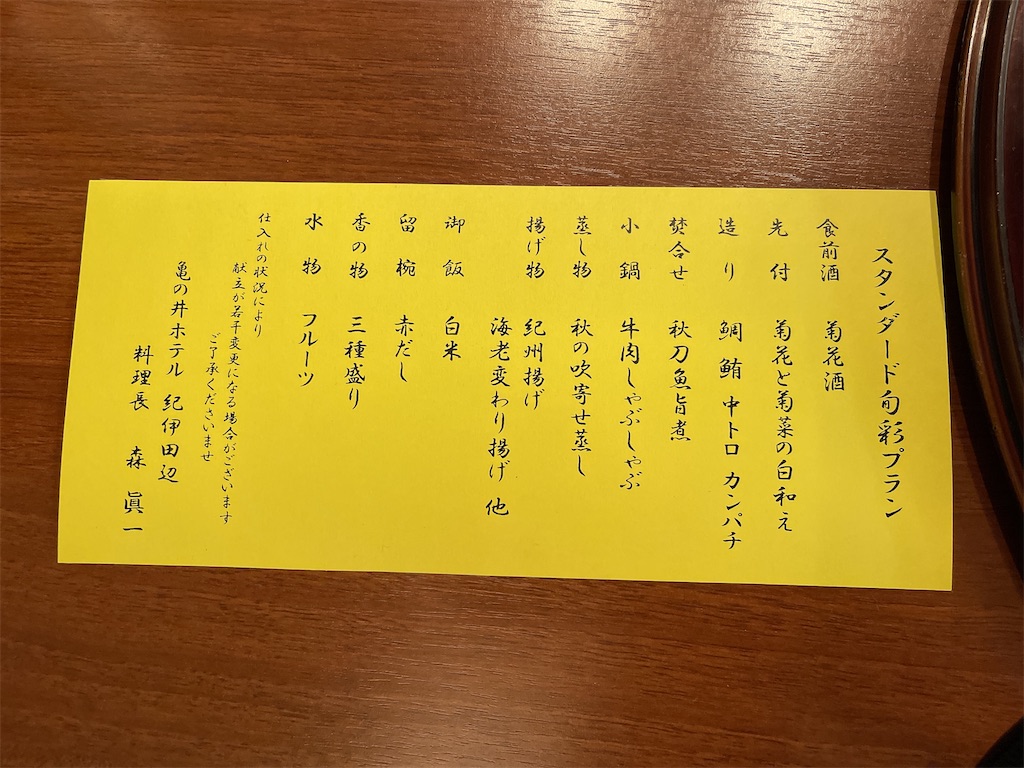 スタンダード旬彩プラン
食前酒 菊花酒
先付 菊花と菊菜の白和え
造り 鯛 鮪 中トロ カンパチ
焚合せ 秋刀魚旨煮
小鍋 牛肉しゃぶしゃぶ
蒸し物 秋の吹寄せ蒸し
揚げ物 紀州揚げ
海老変わり揚げ 他
御飯 白米
留椀 赤だし
香の物 三種盛り
水物 フルーツ
仕入れの状況により
献立が若干変更になる場合がございます
ご了承くださいませ
亀の井ホテル 紀伊田辺
料理長 森 眞一